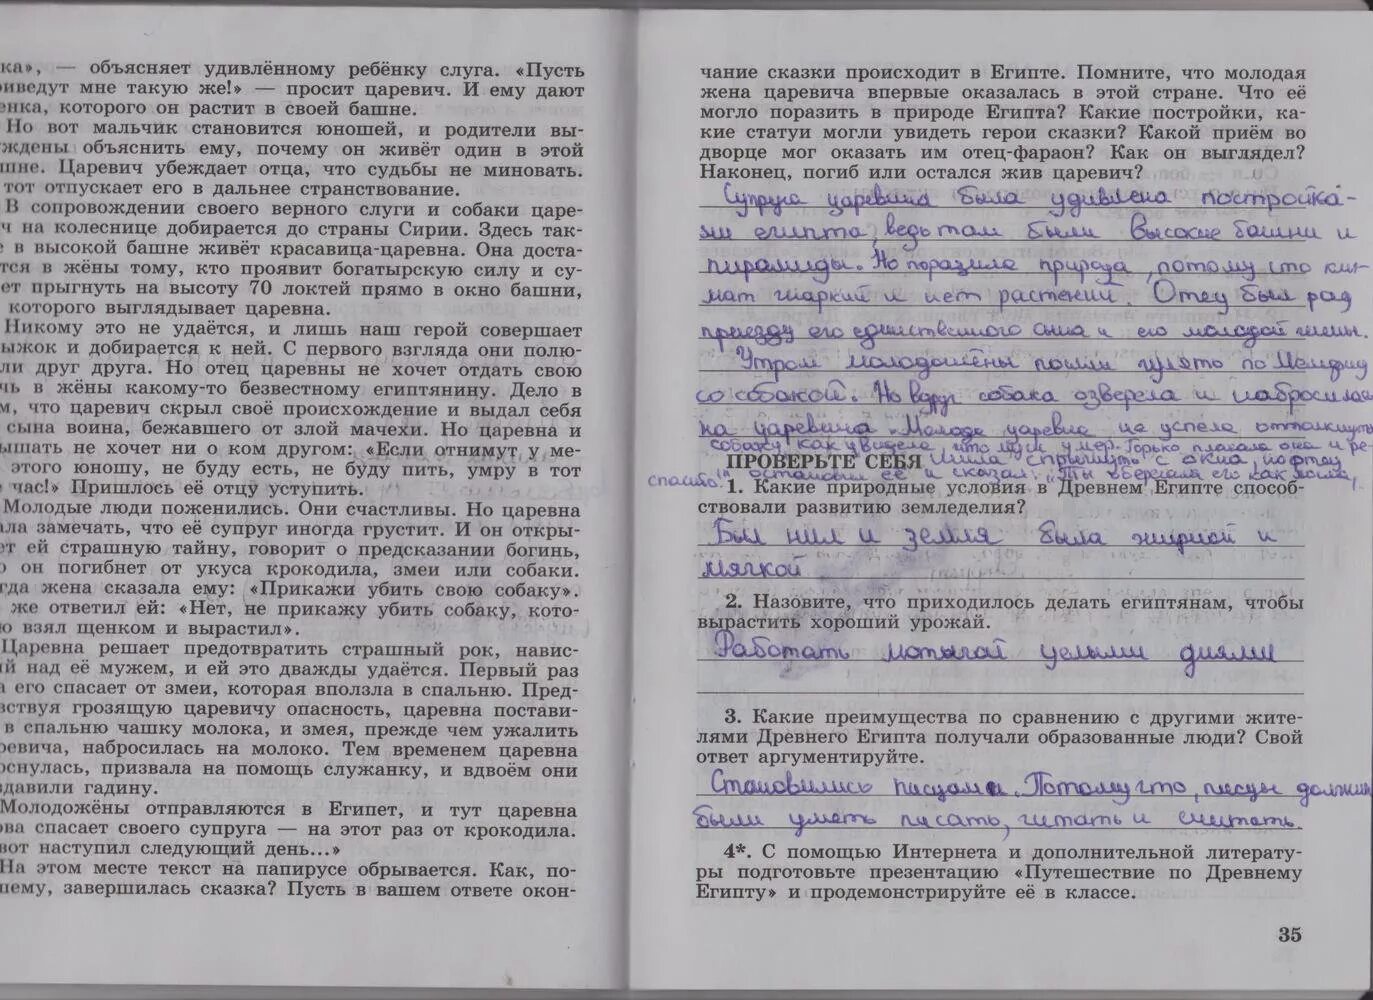 ка», — объясняет удивлённому ребёнку слуга. «Пусть
иведут мне такую же!» — просит царевич. И ему дают
енка, которого он растит в своей башне.
Но вот мальчик становится юношей, и родители вы-
ждены объяснить ему, почему он живёт один в этой
шне. Царевич убеждает отца, что судьбы не миновать.
тот отпускает его в дальнее странствование.
В сопровождении своего верного слуги и собаки царе-
ч на колеснице добирается до страны Сирии. Здесь так-
е в высокой башне живёт красавица-царевна. Она доста-
тся в жёны тому, кто проявит богатырскую силу и су-
ет прыгнуть на высоту 70 локтей прямо в окно башни,
которого выглядывает царевна.
Никому это не удаётся, и лишь наш герой совершает
ыжок и добирается к ней. С первого взгляда они полю-
ли друг друга. Но отец царевны не хочет отдать свою
чь в жёны какому-то безвестному египтянину. Дело в
м, что царевич скрыл своё происхождение и выдал себя
сына воина, бежавшего от злой мачехи. Но царевна и
ышать не хочет ни о ком другом: «Если отнимут у ме-
этого юношу, не буду есть, не буду пить, умру в тот
е час!» Пришлось её отцу уступить.
Молодые люди поженились. Они счастливы. Но царевна
ла замечать, что её супруг иногда грустит. И он откры-
ет ей страшную тайну, говорит о предсказании богинь,
о он погибнет от укуса крокодила, змеи или собаки.
гда жена сказала ему: «Прикажи убить свою собаку».
же ответил ей: «Нет, не прикажу убить собаку, кото-
ю взял щенком и вырастил».
Царевна решает предотвратить страшный рок, навис-
й над её мужем, и ей это дважды удаётся. Первый раз
а его спасает от змеи, которая вползла в спальню. Пред-
вствуя грозящую царевичу опасность, царевна постави-
в спальню чашку молока, и змея, прежде чем ужалить
ревича, набросилась на молоко. Тем временем царевна
оснулась, призвала на помощь служанку, и вдвоём они
здавили гадину.
Молодожёны отправляются в Египет, и тут царевна
ова спасает своего супруга — на этот раз от крокодила.
вот наступил следующий день...»
На этом месте текст на папирусе обрывается. Как, по-
шему, завершилась сказка? Пусть в вашем ответе окон-
чание сказки происходит в Египте. Помните, что молодая
жена царевича впервые оказалась в этой стране. Что её
могло поразить в природе Египта? Какие постройки, ка-
кие статуи могли увидеть герои сказки? Какой приём во
дворце мог оказать им отец-фараон? Как он выглядел?
Наконец, погиб или остался жив царевич?
Супруга царевича была удивлена постройка-
ми египта, ведь там были высокие башни и
пирамиды. Но поразила природа, потому что кли-
мат жаркий и нет растений. Отец был рад
приезду его единственного сына и его молодой жены.
Утром молодожёны пошли гулять по Мемфису
со собакой. Но вдруг собака озверела и набросилась
на царевича. Молода царевна не успела оттолкнуть
собаку как увидела что муж умер. Горько плакала она и ре-
шила спрыгнуть с окна, но отец
остановил её и сказал: „Ты оберегала его как могла,
спасибо!"
ПРОВЕРЬТЕ СЕБЯ
1. Какие природные условия в Древнем Египте способ-
ствовали развитию земледелия?
Был нил и земля была жирной и
мягкой
2. Назовите, что приходилось делать египтянам, чтобы
вырастить хороший урожай.
Работать мотыгой целыми днями
3. Какие преимущества по сравнению с другими жите-
лями Древнего Египта получали образованные люди? Свой
ответ аргументируйте.
Становились писцами. Потому что, писцы должны
были уметь писать, читать и считать.
4*. С помощью Интернета и дополнительной литерату-
ры подготовьте презентацию «Путешествие по Древнему
Египту» и продемонстрируйте её в классе.
35